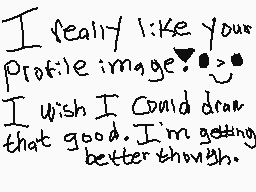 I really like your
profile image!
I wish I could draw
that good. I'm getting
better though.